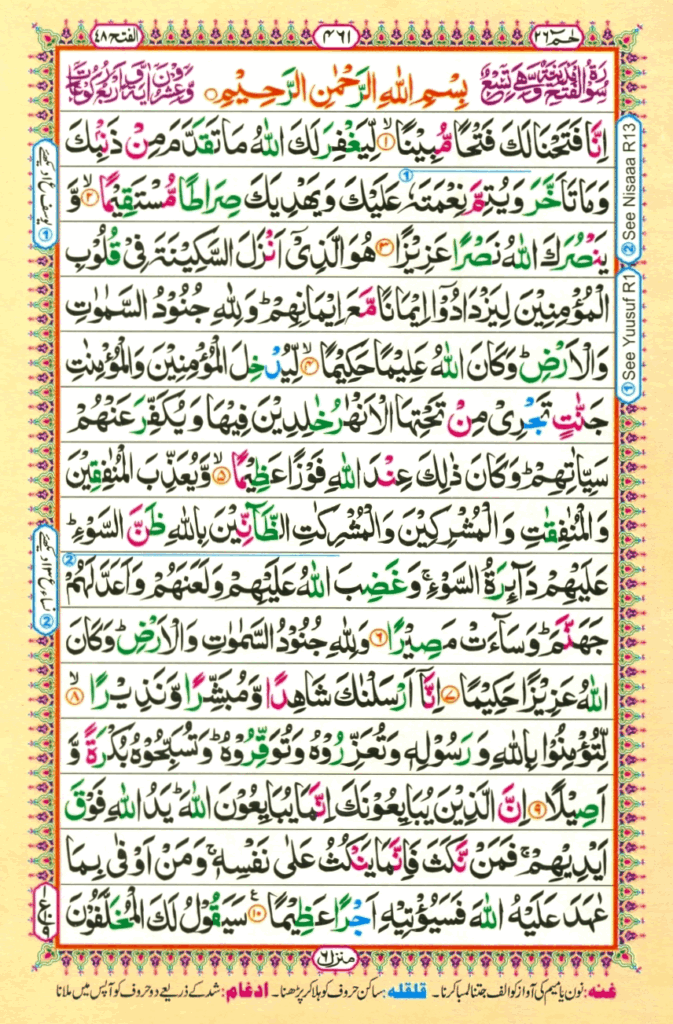 حٰمٓ ٢٦
٤٦١
الفتح ٤٨
سُوْرَةُ الْفَتْحِ مَدَنِيَّةٌ وَّهِيَ تِسْعٌ
بِسْمِ اللّٰهِ الرَّحْمٰنِ الرَّحِيْمِ
وَّعِشْرُوْنَ اٰيَةً وَّاَرْبَعُ رُكُوْعَاتٍ
اِنَّا فَتَحْنَا لَكَ فَتْحًا مُّبِيْنًا ۙ﴿١﴾ لِّيَغْفِرَ لَكَ اللّٰهُ مَا تَقَدَّمَ مِنْ ذَنْۢبِكَ
وَمَا تَاَخَّرَ وَيُتِمَّ نِعْمَتَهٗ عَلَيْكَ وَيَهْدِيَكَ صِرَاطًا مُّسْتَقِيْمًا ۙ﴿٢﴾ وَّ
يَنْصُرَكَ اللّٰهُ نَصْرًا عَزِيْزًا ﴿٣﴾ هُوَ الَّذِيْٓ اَنْزَلَ السَّكِيْنَةَ فِيْ قُلُوْبِ
الْمُؤْمِنِيْنَ لِيَزْدَادُوْٓا اِيْمَانًا مَّعَ اِيْمَانِهِمْ ؕ وَلِلّٰهِ جُنُوْدُ السَّمٰوٰتِ
وَالْاَرْضِ ؕ وَكَانَ اللّٰهُ عَلِيْمًا حَكِيْمًا ۙ﴿٤﴾ لِّيُدْخِلَ الْمُؤْمِنِيْنَ وَالْمُؤْمِنٰتِ
جَنّٰتٍ تَجْرِيْ مِنْ تَحْتِهَا الْاَنْهٰرُ خٰلِدِيْنَ فِيْهَا وَيُكَفِّرَ عَنْهُمْ
سَيِّاٰتِهِمْ ؕ وَكَانَ ذٰلِكَ عِنْدَ اللّٰهِ فَوْزًا عَظِيْمًا ۙ﴿٥﴾ وَّيُعَذِّبَ الْمُنٰفِقِيْنَ
وَالْمُنٰفِقٰتِ وَالْمُشْرِكِيْنَ وَالْمُشْرِكٰتِ الظَّآنِّيْنَ بِاللّٰهِ ظَنَّ السَّوْءِ ؕ
عَلَيْهِمْ دَآئِرَةُ السَّوْءِ ۚ وَغَضِبَ اللّٰهُ عَلَيْهِمْ وَلَعَنَهُمْ وَاَعَدَّ لَهُمْ
جَهَنَّمَ ؕ وَسَآءَتْ مَصِيْرًا ﴿٦﴾ وَلِلّٰهِ جُنُوْدُ السَّمٰوٰتِ وَالْاَرْضِ ؕ وَكَانَ
اللّٰهُ عَزِيْزًا حَكِيْمًا ﴿٧﴾ اِنَّآ اَرْسَلْنٰكَ شَاهِدًا وَّمُبَشِّرًا وَّنَذِيْرًا ۙ﴿٨﴾
لِّتُؤْمِنُوْا بِاللّٰهِ وَرَسُوْلِهٖ وَتُعَزِّرُوْهُ وَتُوَقِّرُوْهُ ؕ وَتُسَبِّحُوْهُ بُكْرَةً وَّ
اَصِيْلًا ﴿٩﴾ اِنَّ الَّذِيْنَ يُبَايِعُوْنَكَ اِنَّمَا يُبَايِعُوْنَ اللّٰهَ ؕ يَدُ اللّٰهِ فَوْقَ
اَيْدِيْهِمْ ۚ فَمَنْ نَّكَثَ فَاِنَّمَا يَنْكُثُ عَلٰى نَفْسِهٖ ۚ وَمَنْ اَوْفٰى بِمَا
عٰهَدَ عَلَيْهُ اللّٰهَ فَسَيُؤْتِيْهِ اَجْرًا عَظِيْمًا ﴿١٠﴾ سَيَقُوْلُ لَكَ الْمُخَلَّفُوْنَ
② See Nisaaa R13
① See Yuusuf R1
① یوسف ع ١ دیکھئے
② نساء ع ١٣ دیکھئے
منزل ٦
غنه: نون یا میم کی آواز کو الف جتنا لمبا کرنا۔ قلقله: ساکن حروف کو ہلا کر پڑھنا۔ ادغام: شد کے ذریعے دو حروف کو آپس میں ملانا